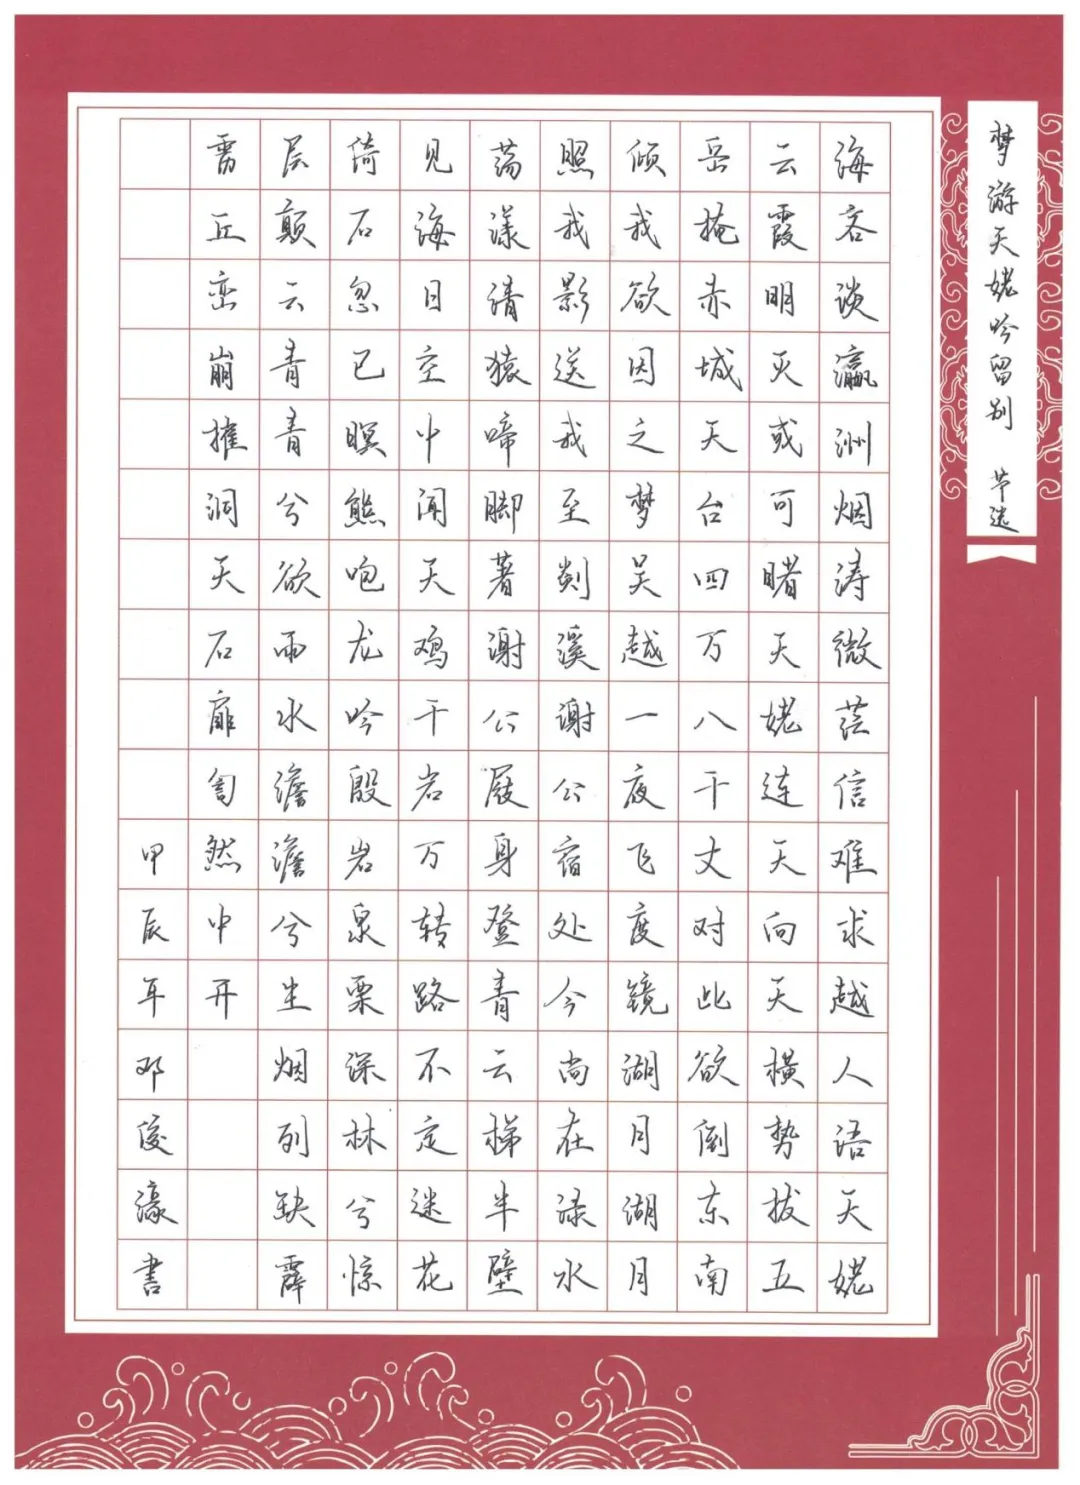 梦游天姥吟留别 节选
海客谈瀛洲烟涛微茫信难求越人语天姥
云霞明灭或可睹天姥连天向天横势拔五
岳掩赤城天台四万八千丈对此欲倒东南
倾我欲因之梦吴越一夜飞度镜湖月湖月
照我影送我至剡溪谢公宿处今尚在渌水
荡漾清猿啼脚著谢公屐身登青云梯半壁
见海日空中闻天鸡千岩万转路不定迷花
倚石忽已暝熊咆龙吟殷岩泉栗深林兮惊
层颠云青青兮欲雨水澹澹兮生烟列缺霹
雳丘峦崩摧洞天石扉訇然中开
甲辰年邓俊濠書